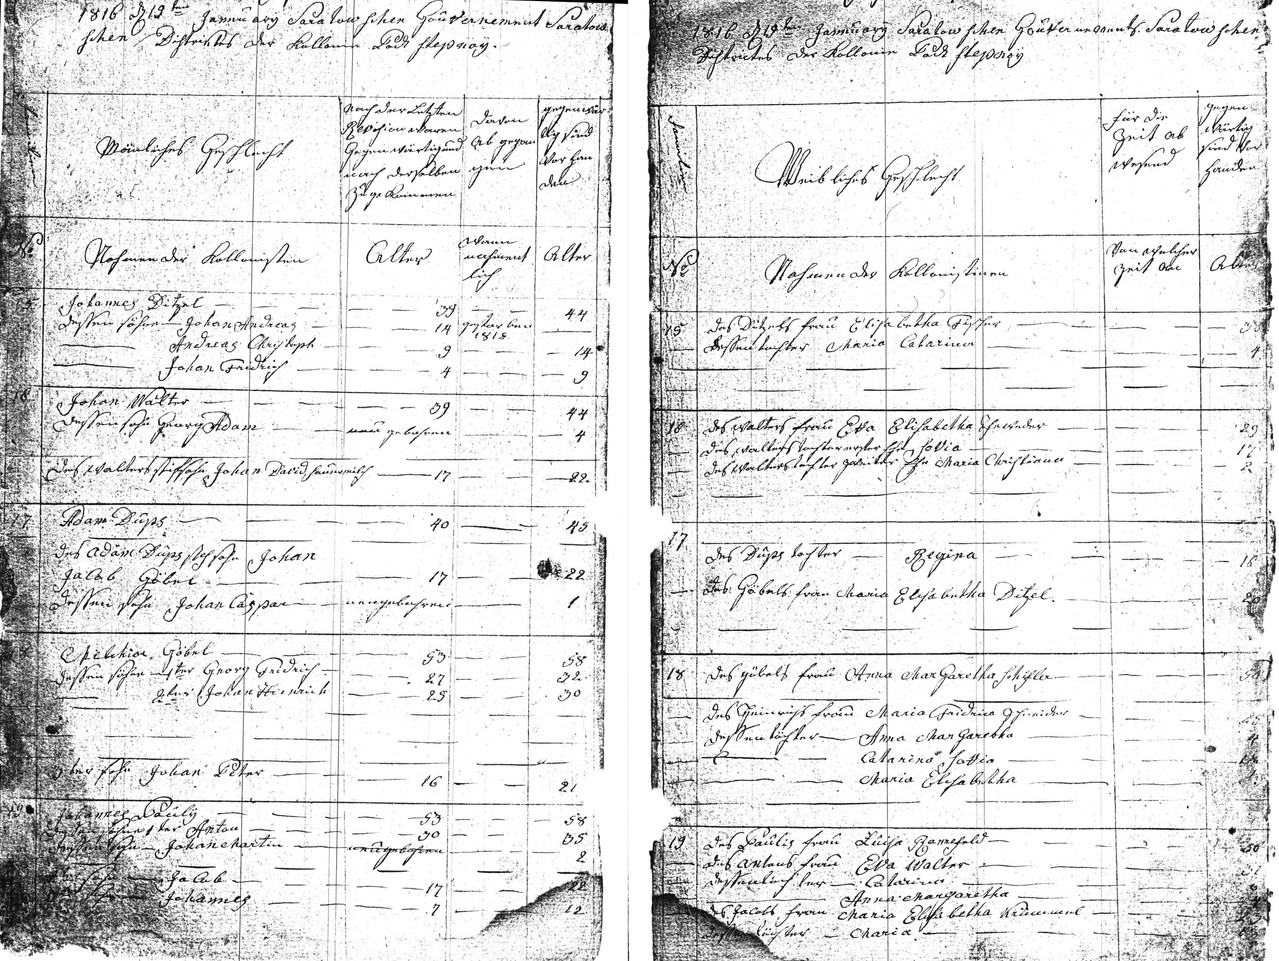 1816 d 19ten Januarÿ Saratowschen Gouvernement Saratow
schen Districtes der Kollonie Podstepnoÿ.
Mänliches Geschlecht
nach der Letzten
Revision waren
Gegenwärtig und
nach derselben
Zu ge kommen
davon
ab gegan
gen
gegenwär
tig sind
vor han
den
No
Nahmen der Kollonisten
Alter
wann
nahment
lich
Alter
15 Johannes Ditzel 39 44
dessen söhne Johan Andreas 14 gestorben 1813
Andreas Christoph 9 14
Johan Fridrich 4 9
16 Johan Walter 39 44
dessen sohn Georg Adam neu gebohren 4
des Walters stiefsohn Johan David 17 22
17 Adam Dups 40 45
des Adam Dups stifsohn Johan
Jacob Göbel 17 22
dessen sohn Johan Caspar neugebohren 1
Melchior Göbel 53 58
dessen söhne 1ter Georg Fridrich 27 32
2ter Johan Heinrich 25 30
3ter sohn Johan Peter 16 21
19 Johannes Pauly 53 58
1ter Anton 30 35
Johan Martin neugebohren 2
Jacob 17 22
Johannes 7 12
1816 d 19ten Januarÿ Saratowschen Gouvernements Saratowschen
Districtes der Kollonie Podstepnoÿ
Familien
Weibliches Geschlecht
für die
Zeit ab
wesend
gegen
wärtig
sind vor
handen
No
Nahmen der Kollonistinen
Von welcher
Zeit an
Alter
15 des Ditzels frau Elisabetha Fischer 38
dessen tochter Maria Catarina 4
16 des Walters frau Eva Elisabetha 29
des Walters tochter erster Ehe Sovia 17
des Walters tochter zweiter Ehe Maria Christiana 2
17
des Dups tochter Regina 18
des Göbels frau Maria Elisabetha Ditzel. 20
18 des Göbels frau Anna Margaretha Schäfer 58
des Heinrichs frau Maria Fridrica Schneider 25
dessen töchter Anna Margaretha
Catarina Sovia
Maria Elisabetha
19 des Paulis frau Luisa 50
des Antons frau Eva Walter 31
dessen töchter Catarina
Anna Margaretha
des Jacobs frau Maria Elisabetha Krümmel
töchter Maria